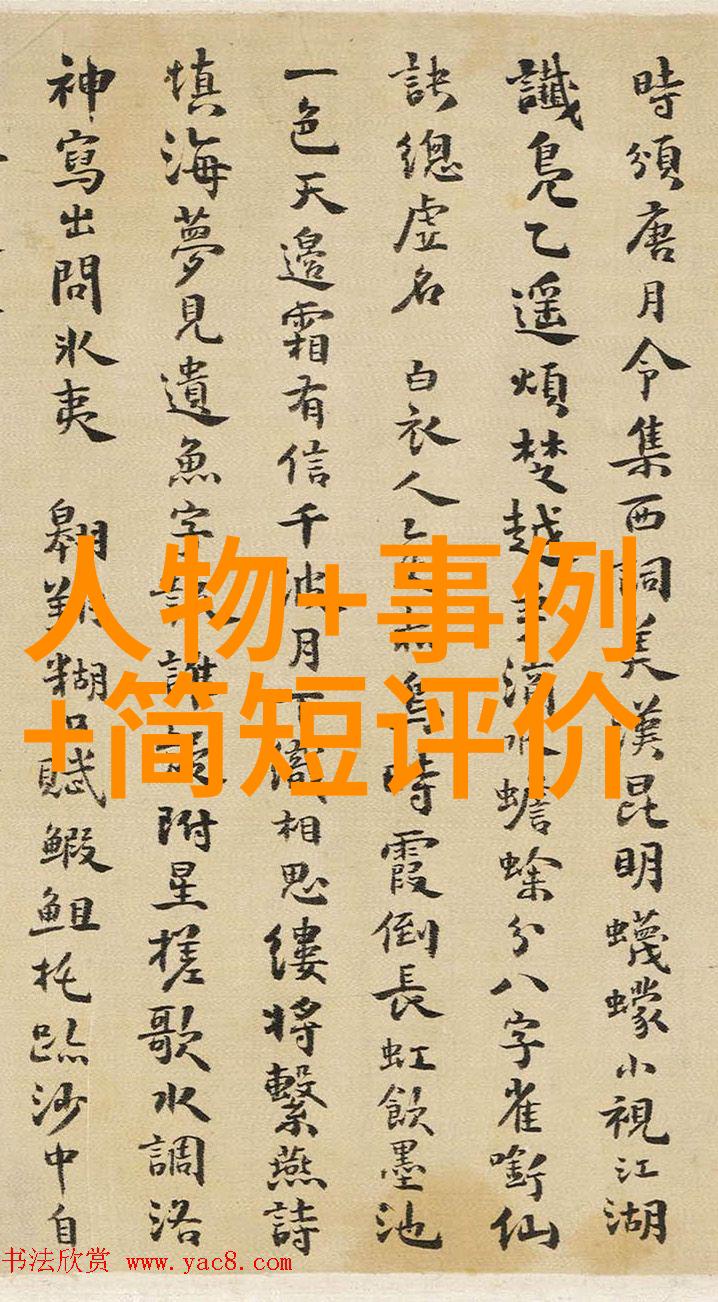 時頒唐月令集西詞美漢昆明蠛蠓小視江湖
讖鳧乙遥煩楚越爭滴水蟾蜍分八字雀銜仙
訣總虛名 白衣人時霞倒長虹飲墨池
一色天邉霜有信千波月相思縷將繫燕詩
填海夢見遺魚字誰附星槎歌水調洛
神寫出問氷夷 翱翔糊口賦鰕鉏托跡沙中自
人物+事例
+简短评价
书法欣赏 www.yac8.com